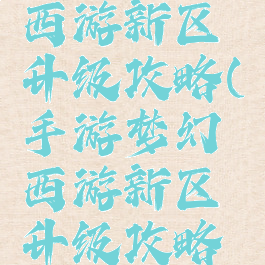 西游新区
升级攻略(
手游梦幻
西游新区
升级攻略